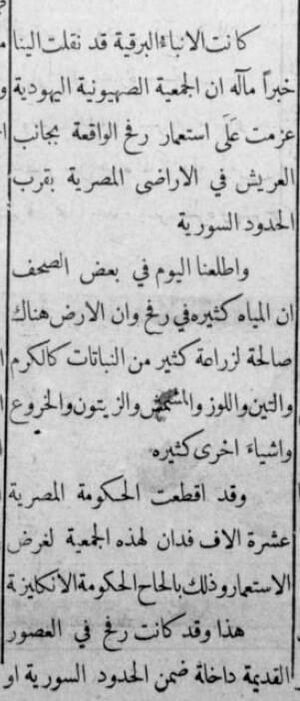 كانت الانباء البرقية قد نقلت الينا
خبراً مآله ان الجمعية الصهيونية اليهودية
عزمت عَلَى استعمار رفح الواقعة بجانب
العريش في الاراضى المصرية بقرب
الحدود السورية
واطلعنا اليوم في بعض الصحف
ان المياه كثيره في رفح وان الارض هناك
صالحة لزراعة كثير من النباتات كالكرم
والتين واللوز والمشمش والزيتون والخروع
واشياء اخرى كثيره
وقد اقطعت الحكومة المصرية
عشرة الاف فدان لهذه الجمعية لغرض
الاستعمار وذلك بالحاح الحكومة الانكليزية
هذا وقد كانت رفح في العصور
القديمة داخلة ضمن الحدود السورية او